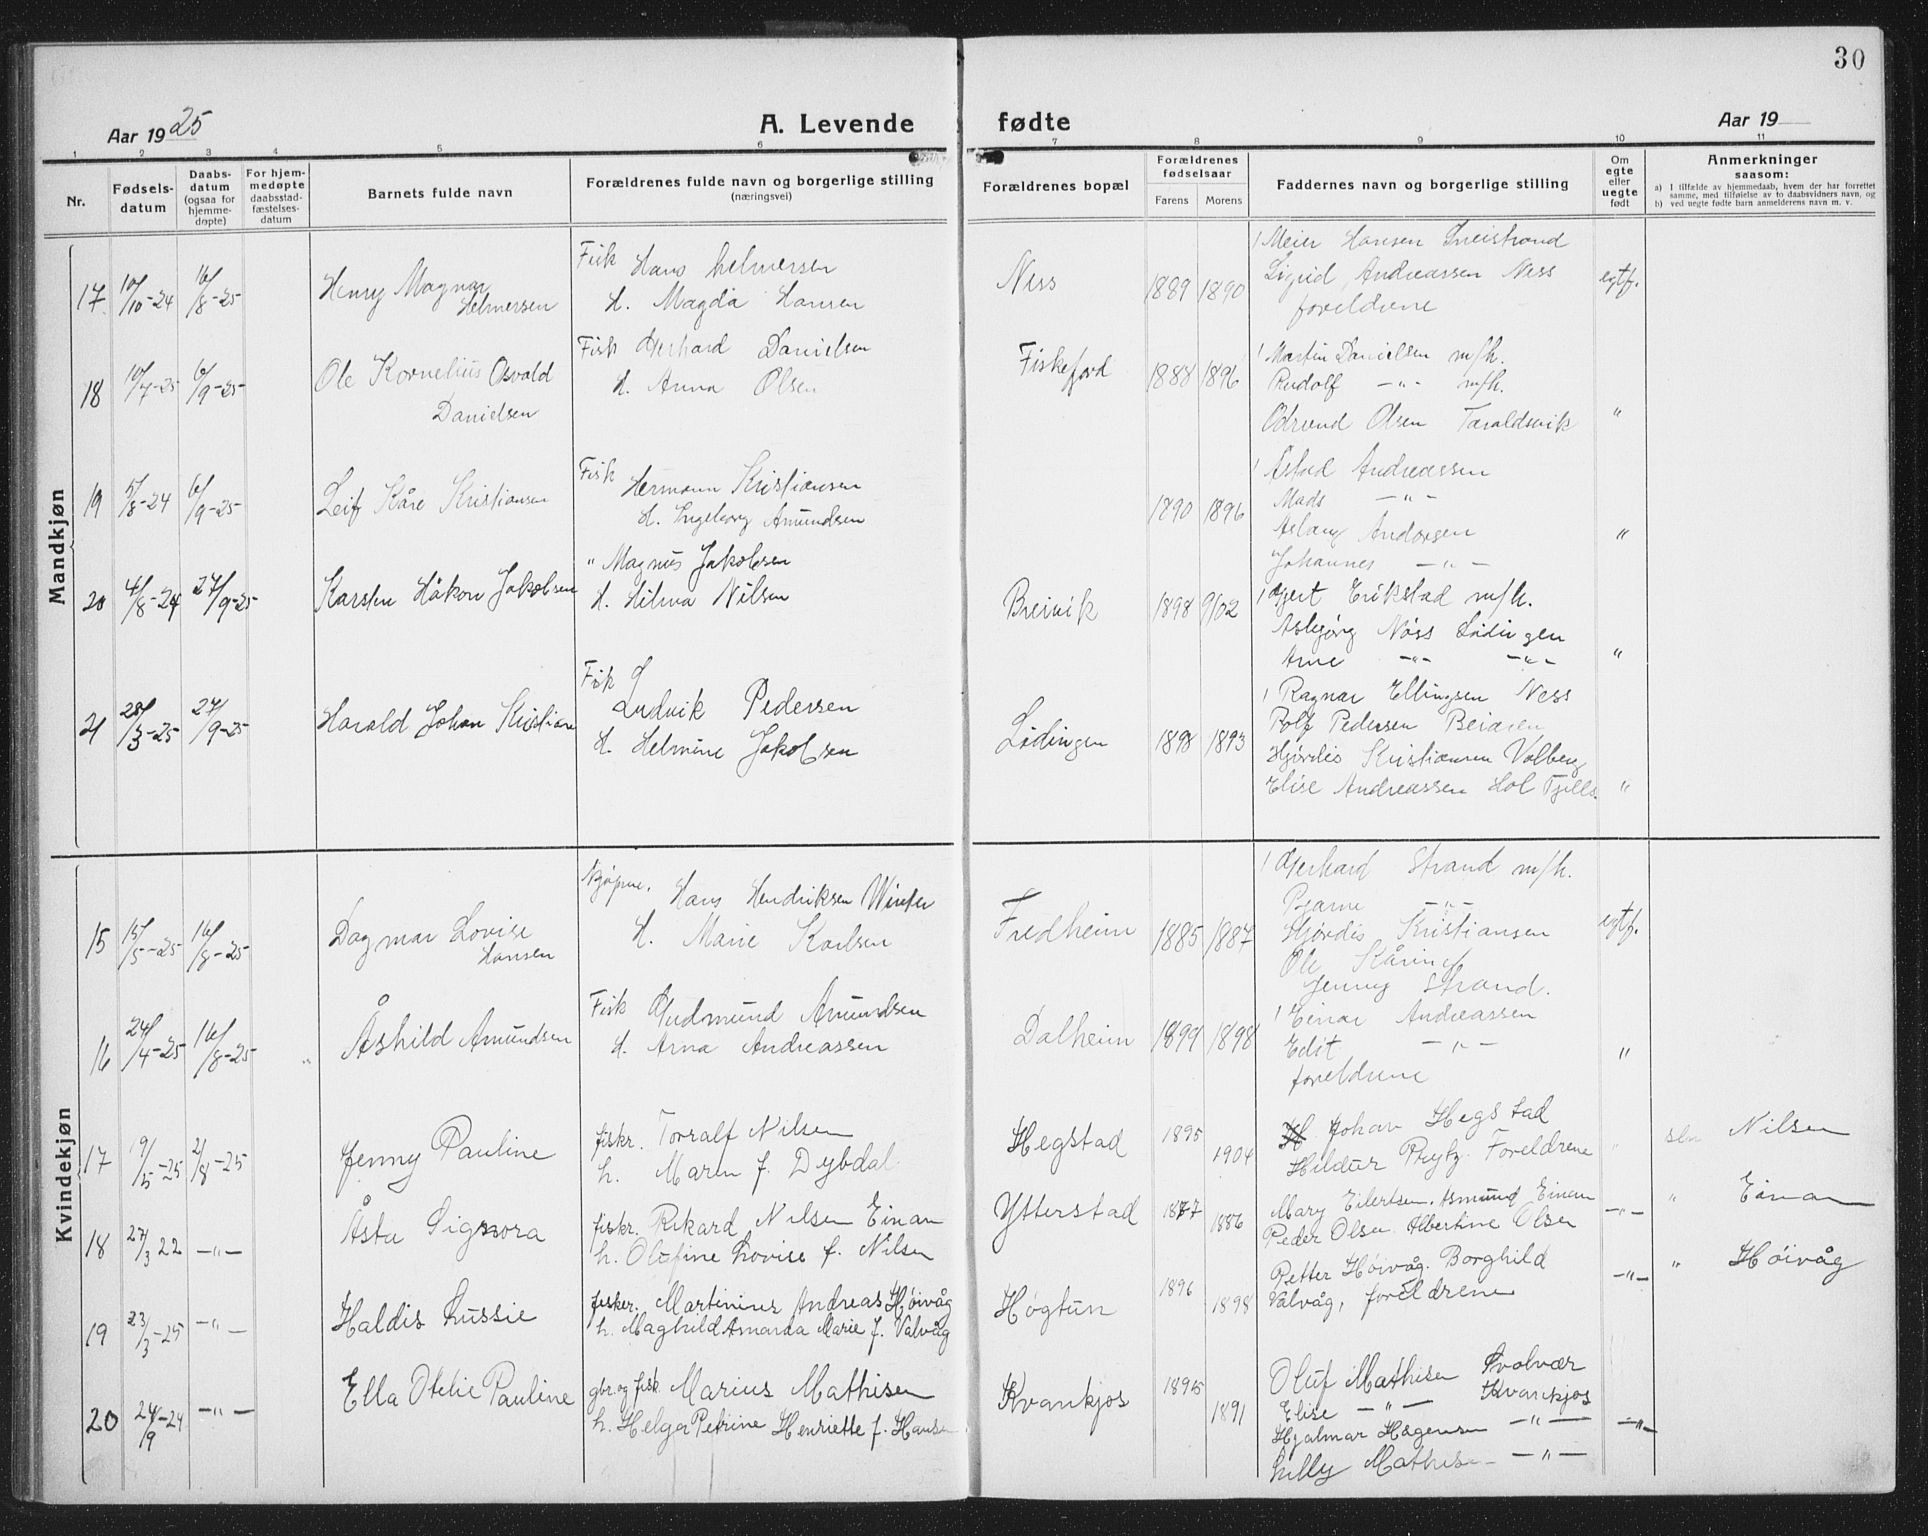 30
Aar 1925 A. Levende fødte Aar 19
1 2 3 4 5 6 7 8 9 10 11
Nr. Fødsels-datum Daabs-datum (ogsaa for hjemme-døpte) For hjem-medøpte daabsstad-fæstelses-datum Barnets fulde navn Forældrenes fulde navn og borgerlige stilling (næringsvei) Forældrenes bopæl Forældrenes fødselsaar Farens Morens Faddernes navn og borgerlige stilling Om egte eller uegte født Anmerkninger saasom:
a) I tilfælde av hjemmedaab, hvem der har forrettet samme, med tilføielse av to daabsvidners navn, og
b) ved uegte fødte barn anmelderens navn m. v.
Mandkjøn
17 10/10-24 16/8-25 Henry Magnar Helmersen Fisk Hans Helmersen H. Magda Hansen Ness 1889 1890 Meier Hansen Sneistrand egtf.
Sigrid Andreassen Ness
foreldrene
18 10/7-25 6/9-25 Ole Kornelius Osvald Danielsen Fisk Gerhard Danielsen H. Anna Olsen Fiskefjord 1888 1896 Martin Danielsen m/h.
Rudolf -"- m/h.
Olsen Taraldsvik "
19 5/8-24 6/9-25 Leif Kåre Kristiansen Fisk Hermann Kristiansen H. Ingeborg Amundsen 1890 1896 Andreassen
Mads -"-
Aslaug Andorsen "
Johannes -"-
20 4/8-24 27/9-25 Karsten Håkon Jakobsen " Magnus Jakobsen H. Hilma Nilsen Breivik 1898 902 Gjert Erikstad m/h.
Asbjørg Nöss Lödingen
Arne -"- -"- "
21 28/3-25 27/9-25 Harald Johan Kristian Fisk Ludvik Pedersen H. Helmine Jakobsen Lödingen 1898 1893 Ragnar Ellingsen Ness
Rolf Pedersen Beiaren
Hjördis Kristiansen Volberg
Elise Andreassen Hol Tjells. "
Kvindekjøn
15 15/5-25 16/8-25 Dagmar Lovise Hansen Hans Hendriksen Winter H. Marie Karlsen Fredheim 1885 1887 Gerhard Strand m/h. egtf.
Bjarne -"-
Hjördis Kristiansen
Ole
Jenny Strand.
16 24/4-25 16/8-25 " Åshild Amundsen Fisk Gudmund Amundsen H. Arna Andreassen Dalheim 1899 1898 Einar Andreassen
Edit -"- "
foreldrene
17 19/5-25 2/8-25 Jenny Pauline fiskr. Torralf Nilsen h. Maren f. Dybdal. Hegstad 1895 1904 Johan Hegstad
Hildur Prytz. Foreldrene " Nilsen
18 27/3 22 -"- Åsta Signora fiskr. Rikard Nilsen Einan h. Olufine Lovise f. Nilsen Ytterstad 1877 1886 Mary Eilertsen. Asmund Einan
Peder Olsen. Albertine Olsen -"- " Einan
19 23/3-25 -"- Haldis Lussie fisker. Martinius Andreas Höivåg h. Maghild Amanda Marie f. Valvåg Høgtun 1896 1898 Petter Höivåg. Borghild
Valvåg, foreldrene -"- " Höivåg
20 24/9-24 -"- Ella Otelie Pauline gbr. og fisk. Marius Mathisen h. Helga Petrine Henriette f. Hansen Kvankjos 1895 1891 Oluf Mathisen Svolvær
Elise -"- Kvankjos
Hjalmar Hagensen -"- -"-
Lilly Mathisen -"-